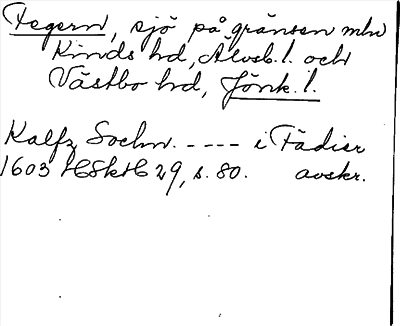 Fegern, sjö på gränsen mln
Kinds hd, Älvsb. l. och
Västbo hd, Jönk. l.
Kalfz Sochn. ---- i Fädier
1603 HSkH 29, s. 80. avskr.